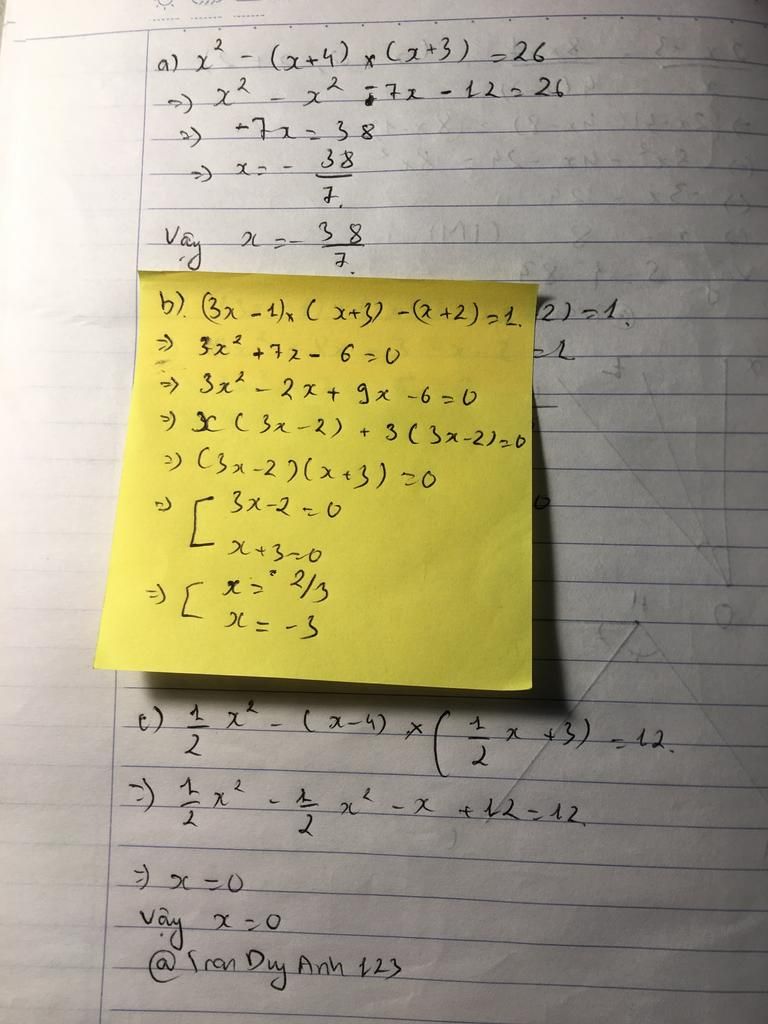 a) x² - (x+4) × (x+3) = 26
=> x² - x² - 7x - 12 = 26
=> -7x = 38
=> x = - 38/7.
Vậy x = - 38/7.
b). (3x - 1) × (x+3) - (x+2) = 1. 2) = 1.
=> 3x² + 7x - 6 = 0 = 1
=> 3x² - 2x + 9x - 6 = 0
=> x (3x - 2) + 3 (3x - 2) = 0
=> (3x - 2) (x + 3) = 0
=> [ 3x - 2 = 0
x + 3 = 0
=> [ x = 2/3
x = -3
c) 1/2 x² - (x - 4) × (1/2 x + 3) = 12.
=> 1/2 x² - 1/2 x² - x + 12 = 12.
=> x = 0
Vậy x = 0
@Tran Duy Anh 123